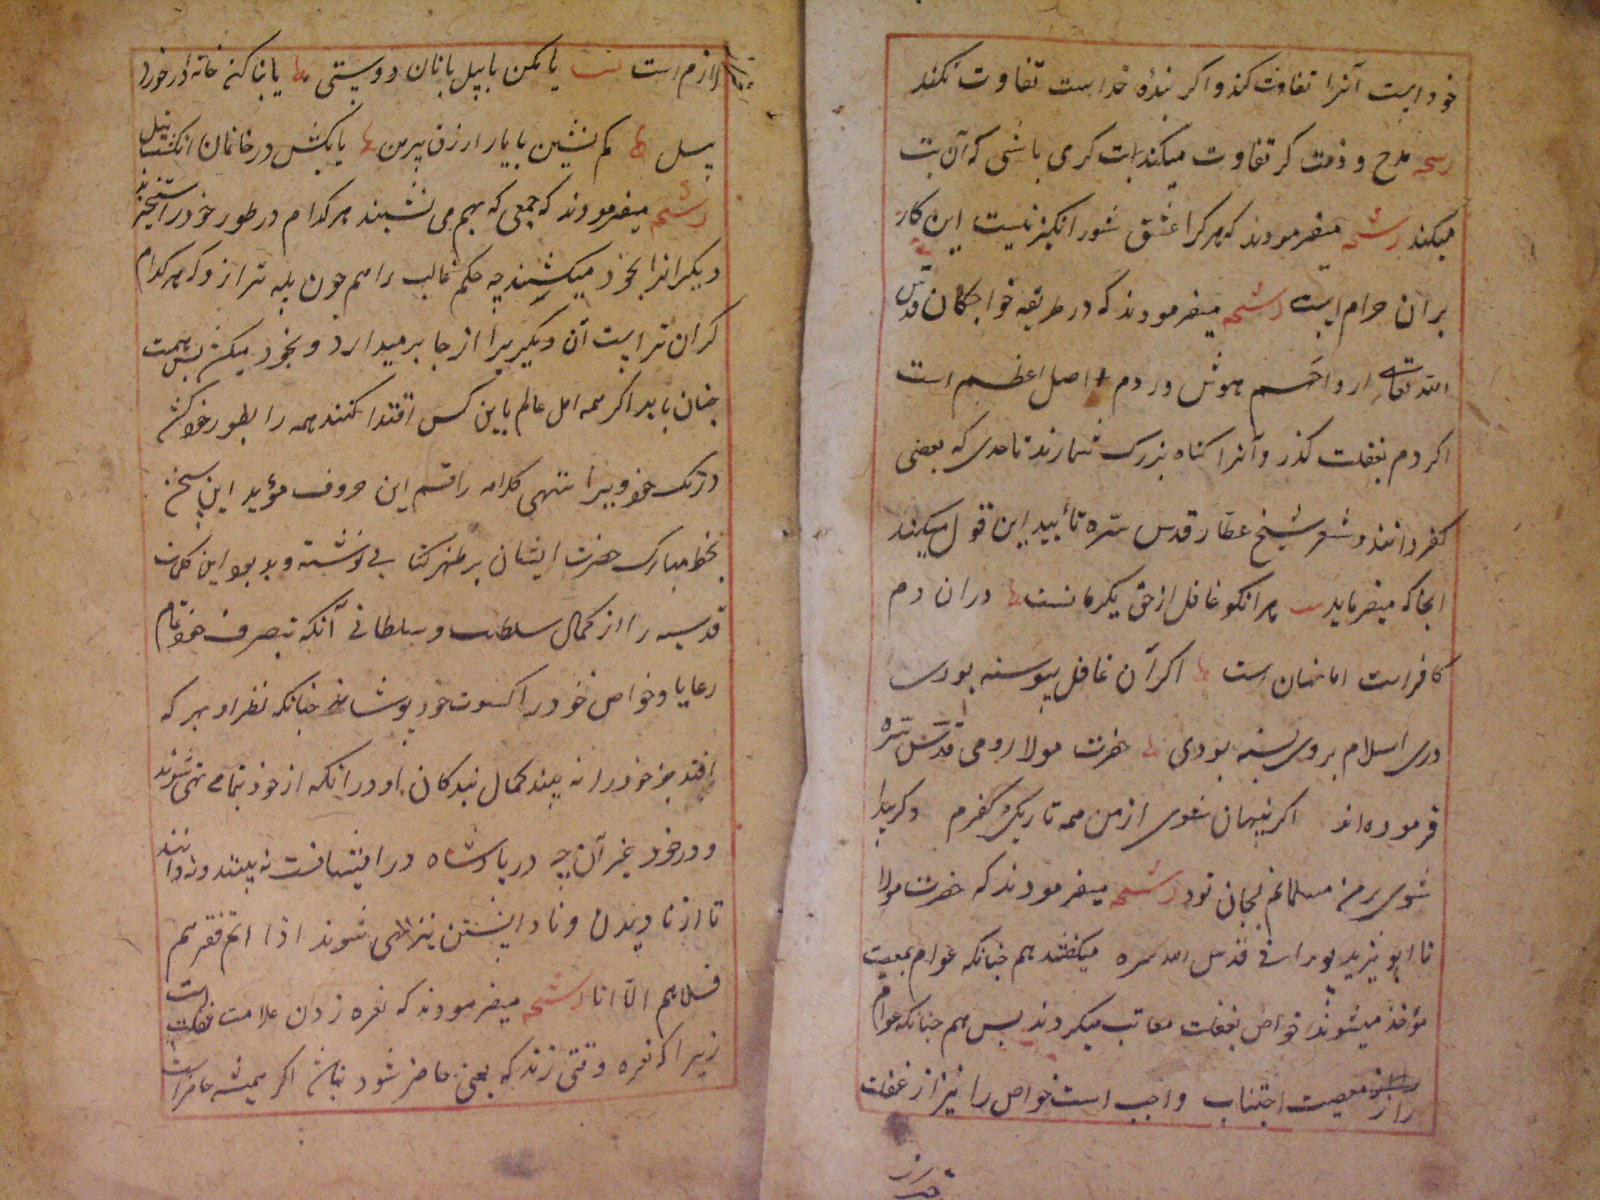 خود است آنرا تفاوت کند و اکر بندهٔ خداست تفاوت نکند
رشحه مدح و ذمت کر تفاوت میکند بت کری باشی که آن بت
میکند رشحه میفرمودند که هر کرا عشق شور انکیز نیست این کار
بر ان حرام است رشحه میفرمودند که در طریقه خواجکان قدس
الله تعالی ارواحهم هوش در دم اصل اعظم است
اکر دم بغفلت کذرد آنرا کناه بزرک شمارند تا حدی که بعضی
کفر دانند و شعر شیخ عطار قدس سره تأیید این قول میکند
انجا که میفرماید بیت هر انکو غافل از حق یکزمانست در ان دم
کافر است اما نهان است اکر آن غافل پیوسته بودی
در اسلام بر وی بسته بودی حضرت مولا رومی قدس سره
فرموده اند اکر پنهان شوی از من همه تاریکی و کفرم وکر پیدا
شوی بر من مسلمانم بجان تو رشحه میفرمودند که حضرت مولا
نا ابو یزید پورانی قدس الله سره میکفتند هم چنانکه عوام بمعصیت
مؤخذ میشوند خواص بغفلت معاتب میکردند پس هم چنانکه عوام
را از معصیت اجتناب واجب است خواص را نیز از غفلت
لازم است بیت یا مکن با پیل بانان دوستی یا بنا کن خانه در خورد
پیل کم نشین با یار ارزق پیرهن یا بکش در خانمان انکشت نیل
رشحه میفرمودند که جمعی که بهم می نشینند هر کدام در طور خود راسختر
دیکرانرا بخود میکشند چه حکم غالب راهم چون پله ترازو که هر کدام
کران تر است آن دیکریرا از جا بر میدارد و بخود میکشد پس همت
چنان باید اکر همه اهل عالم باین کس اقتدا کنند همه را بطور خود کشد
در رنک خود ویرا انتهی کلامه راقم این حروف مؤید این سخن
بخط مبارک حضرت ایشان بر ظهر کتابی نوشته دیده بود این کلمات
قدسیه را از کمال سلطنت و سلطانی آنکه بتصرف خود تمام
رعایا و خواص خود را کسوت خود پوشاند چنانکه نظر او بهر که
افتد جز خود را نه بیند کمال بندکان او در انکه از خود بتمامی تهی شوند
و در خود غیر آن چه در پادشاه در ایشانست نه بینند و نه دانند
تا از نادیدن و نادانستن نیز تهی شوند اذا اتم فقرهم
فلا هم الا انا رشحه میفرمودند که نعره زدن علامت غفلت است
زیرا که نعره وقتی زند که بمعنی حاضر شود بناش اکر همیشه حاضر است